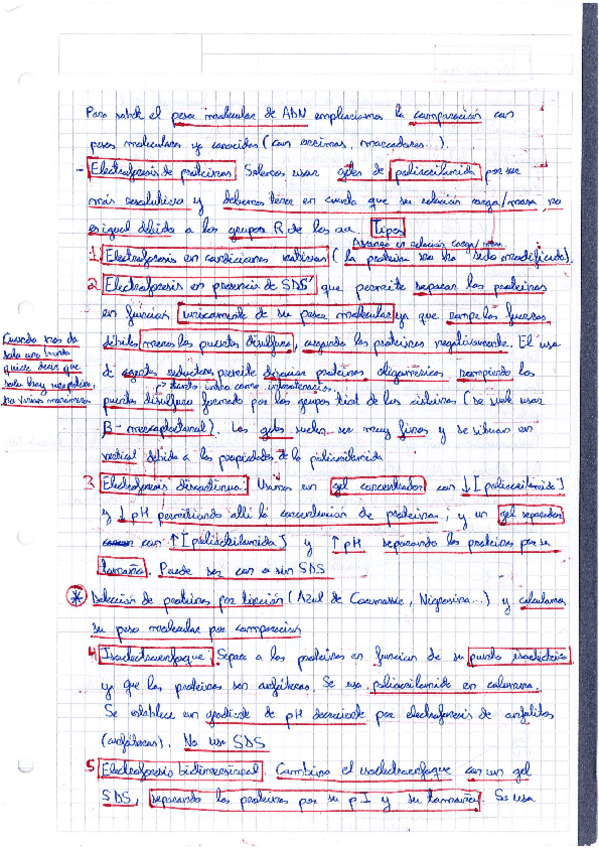 Para saber el peso molecular de ADN empleamos la comparación con
pesos moleculares ya conocidos (con enzimas, marcadores..).
- Electroforesis de proteínas Solemos usar geles de poliacrilamida por ser
más resolutiva y debemos tener en cuenta que su relación carga/masa no
es igual debido a los grupos R de los aa. Tipos
relación carga/masa
1 Electroforesis en condiciones nativas (la proteína sea no sido modificada).
2 Electroforesis en presencia de SDS que permite separar las proteínas
en función únicamente de su peso molecular ya que rompe las fuerzas
débiles menos los puentes disulfuro, cargando las proteínas negativamente. El uso
de agentes reductores permite disociar proteínas oligoméricas rompiendo los
puentes disulfuro formado por los grupos tiol de las cisteínas (se suele usar
β-mercaptoetanol). Los geles suelen ser muy finos y se sitúan en
vertical debido a las propiedades de la poliacrilamida
Cuando nos da
solo una banda
quiere decir que
solo hay
3 Electroforesis discontinua: Usamos en gel concentrador con ↓[poliacrilamida]
y ↓pH permitiendo allí la concentración de proteínas, y un gel separador
con ↑[poliacrilamida] y ↑pH separando las proteínas por su
tamaño. Puede ser con o sin SDS
* Detección de proteínas por tinción (Azul de Coomassie, Nigrosina...) y calculamos
su peso molecular por comparación
4 Isoelectroenfoque: Separa a las proteínas en función de su punto isoeléctrico
ya que las proteínas son anfóteras. Se usa poliacrilamida en columna.
Se establece un gradiente de pH decreciente por electroforesis de anfolitos
(anfóteros). No usa SDS
5 Electroforesis bidimensional. Combina el isoelectroenfoque con un gel
SDS, separando las proteínas por su pI y su tamaño. Se usa